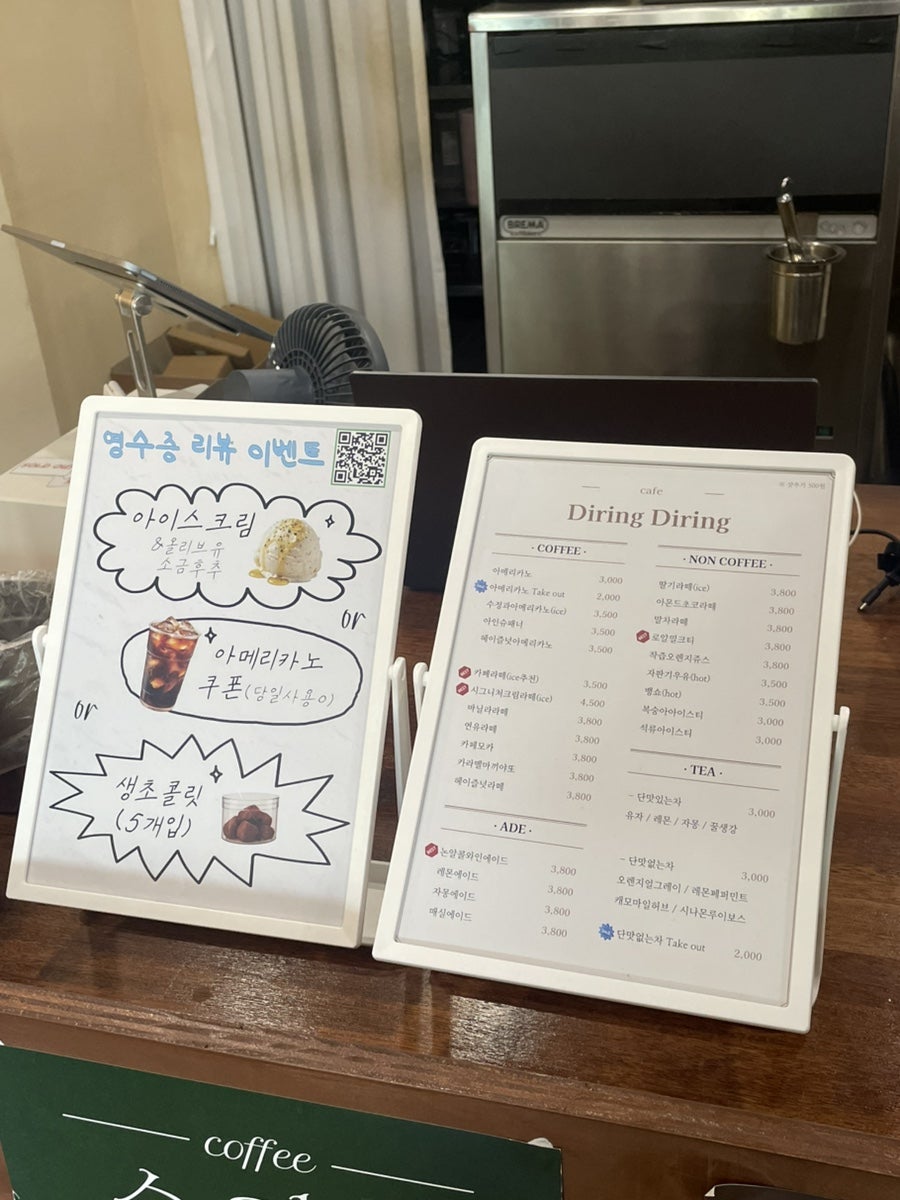 BREMA
영수증 리뷰 이벤트
아이스크림
&올리브유
소금후추
or
아메리카노
쿠폰(당일사용0)
or
생초콜릿
(5개입)
※ 샷추가 500원
cafe
Diring Diring
· COFFEE ·
아메리카노 3,000
아메리카노 Take out 2,000
수정과아메리카노(ice) 3,500
아인슈패너 3,500
헤이즐넛아메리카노 3,500
카페라떼(ice추천) 3,500
시그니처크림라떼(ice) 4,500
바닐라라떼 3,800
연유라떼 3,800
카페모카 3,800
카라멜마끼아또 3,800
헤이즐넛라떼 3,800
· ADE ·
논알콜와인에이드 3,800
레몬에이드 3,800
자몽에이드 3,800
매실에이드 3,800
· NON COFFEE ·
딸기라떼(ice) 3,800
아몬드초코라떼 3,800
말차라떼 3,800
로얄밀크티 3,800
착즙오렌지쥬스 3,500
자판기우유(hot) 3,500
뱅쇼(hot) 3,000
복숭아아이스티 3,000
석류아이스티
· TEA ·
- 단맛있는차 3,000
유자 / 레몬 / 자몽 / 꿀생강
- 단맛없는차 3,000
오렌지얼그레이 / 레몬페퍼민트
캐모마일허브 / 시나몬루이보스
단맛없는차 Take out 2,000
coffee